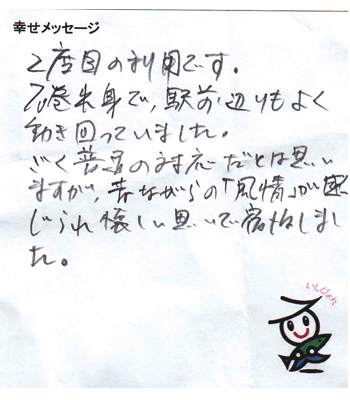 幸せメッセージ
2度目の利用です。
石巻出身で、駅前辺りもよく
動き回っていました。
ごく普通の対応だとは思い
ますが、昔ながらの「風情」が感
じられ懐しい思いで宿泊しまし
た。
いしぴょん